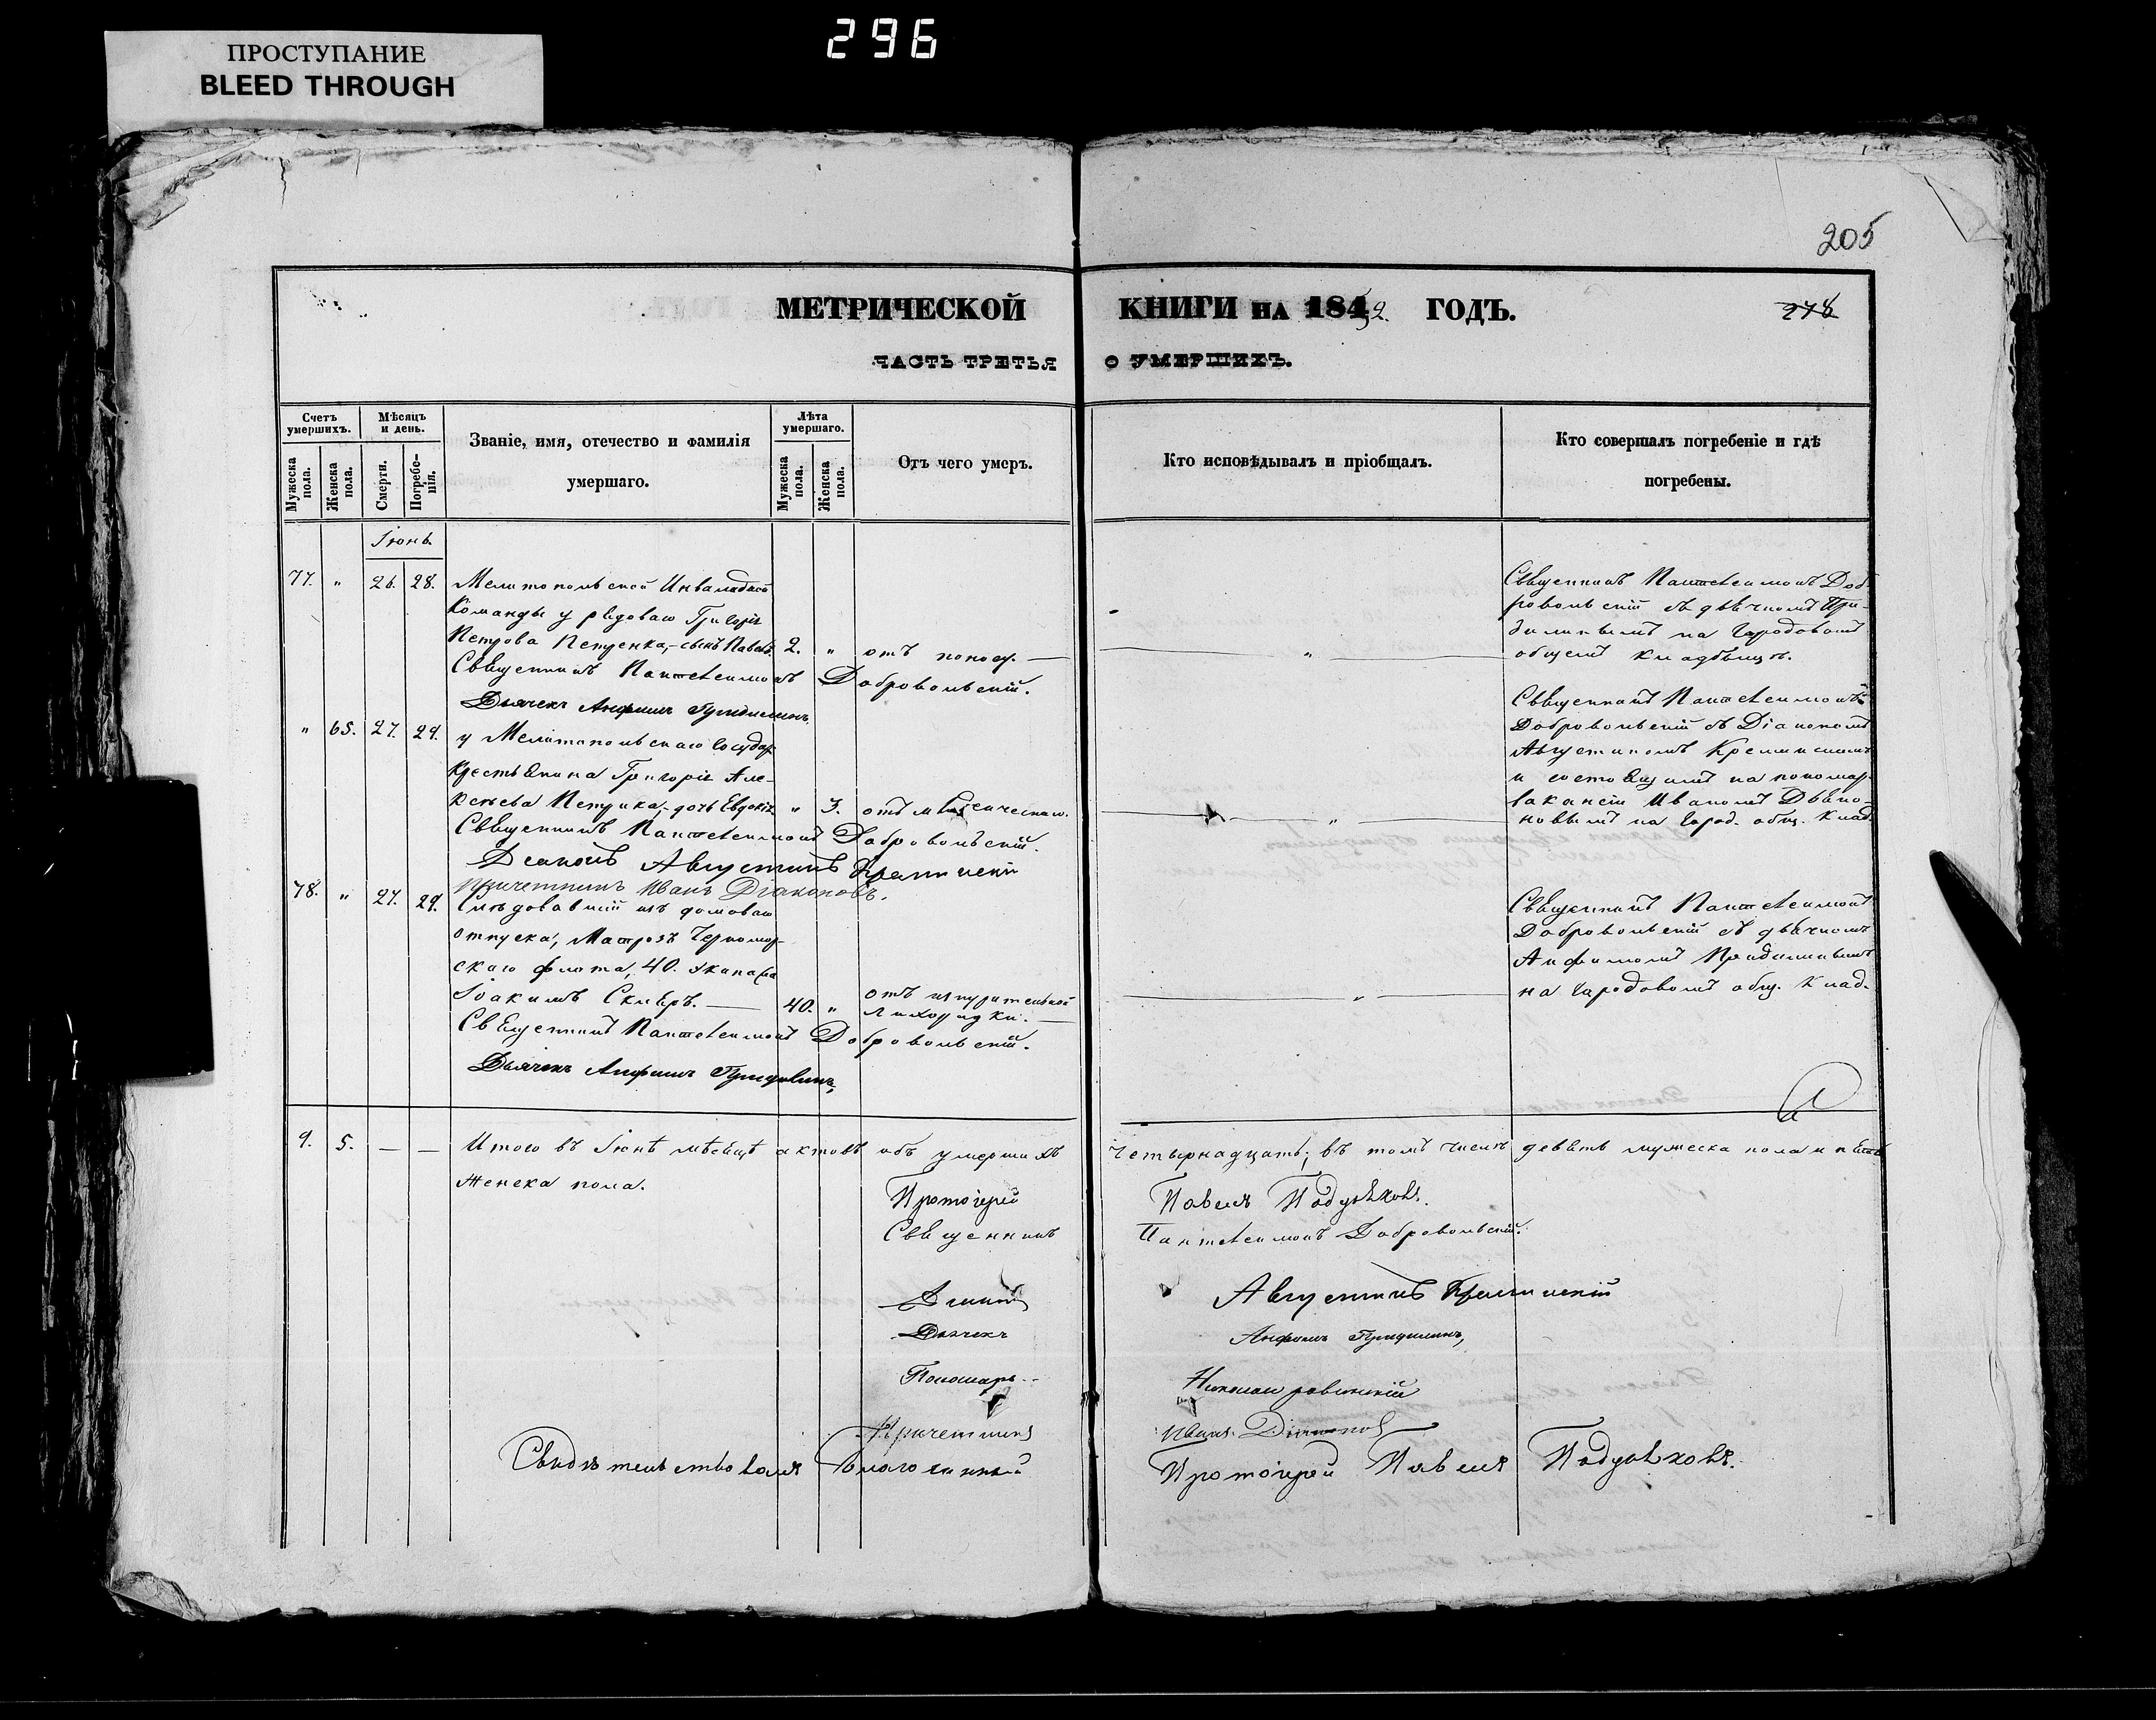 296
ПРОСТУПАНИЕ
BLEED THROUGH
205
МЕТРИЧЕСКОЙ КНИГИ НА 1852. ГОДЪ.
278
ЧАСТЬ ТРЕТЬЯ О УМЕРШИХЪ.
Счетъ умершихъ.
Мужеска пола.
Женска пола.
Мѣсяцъ и день.
Смерти.
Погребенія.
Званіе, имя, отечество и фамилія
умершаго.
Лѣта умершаго.
Мужеска пола.
Женска пола.
Отъ чего умеръ.
Кто исповѣдывалъ и пріобщалъ.
Кто совершалъ погребеніе и гдѣ
погребены.
Іюнь.
77. " 26. 28. Мелитопольской Инвалидной
Команды у рядоваго Григорія
Петрова Петренка,- сынъ Павелъ. 2. " отъ поносу. —
Священникъ Пантелеимонъ Добровольскій.
Дьячекъ Анфимъ
Священникъ Пантелеимонъ Доб-
ровольскій съ дьячкомъ При-
на Городовомъ
общемъ кладбищѣ.
" 65. 27. 29. у Мелитопольскаго Государ.
Крестьянина Григорія Але-
ксѣева Петрика,- дочь Евдокія " 3. отъ младенческаго.
Священникъ Пантелеимонъ Добровольскій.
Діаконъ Августинъ
Причетникъ Иванъ Діаконовъ.
Священникъ Пантелеимонъ
Добровольскій съ Діакономъ
Августиномъ
и состоящимъ на пономар.
вакансіи Иваномъ Дьяко-
новымъ на Город. общ. Клад.
78. " 27. 29. Слѣдовавшій изъ домоваго
отпуска, Матрозъ Черномор-
скаго флота, 40. экипажа
Іоакимъ — 40. " отъ изнурительной
лихорадки. —
Священникъ Пантелеимонъ Добровольскій.
Дьячекъ Анфимъ
Священникъ Пантелеимонъ
Добровольскій съ дьячкомъ
Анфимомъ
на Городовомъ общ. Клад.
9. 5. — — Итого въ Іюнѣ мѣсяцѣ актовъ объ умершихъ Четырнадцать; въ томъ числѣ девять мужеска пола и пять
женска пола.
Протоіерей Павелъ
Священникъ Пантелеимонъ Добровольскій.
Августинъ
Дьячекъ Анфимъ
Пономарь Николай
Причетникъ Иванъ
Свидѣтельствовалъ Благочинный Протоіерей Павелъ